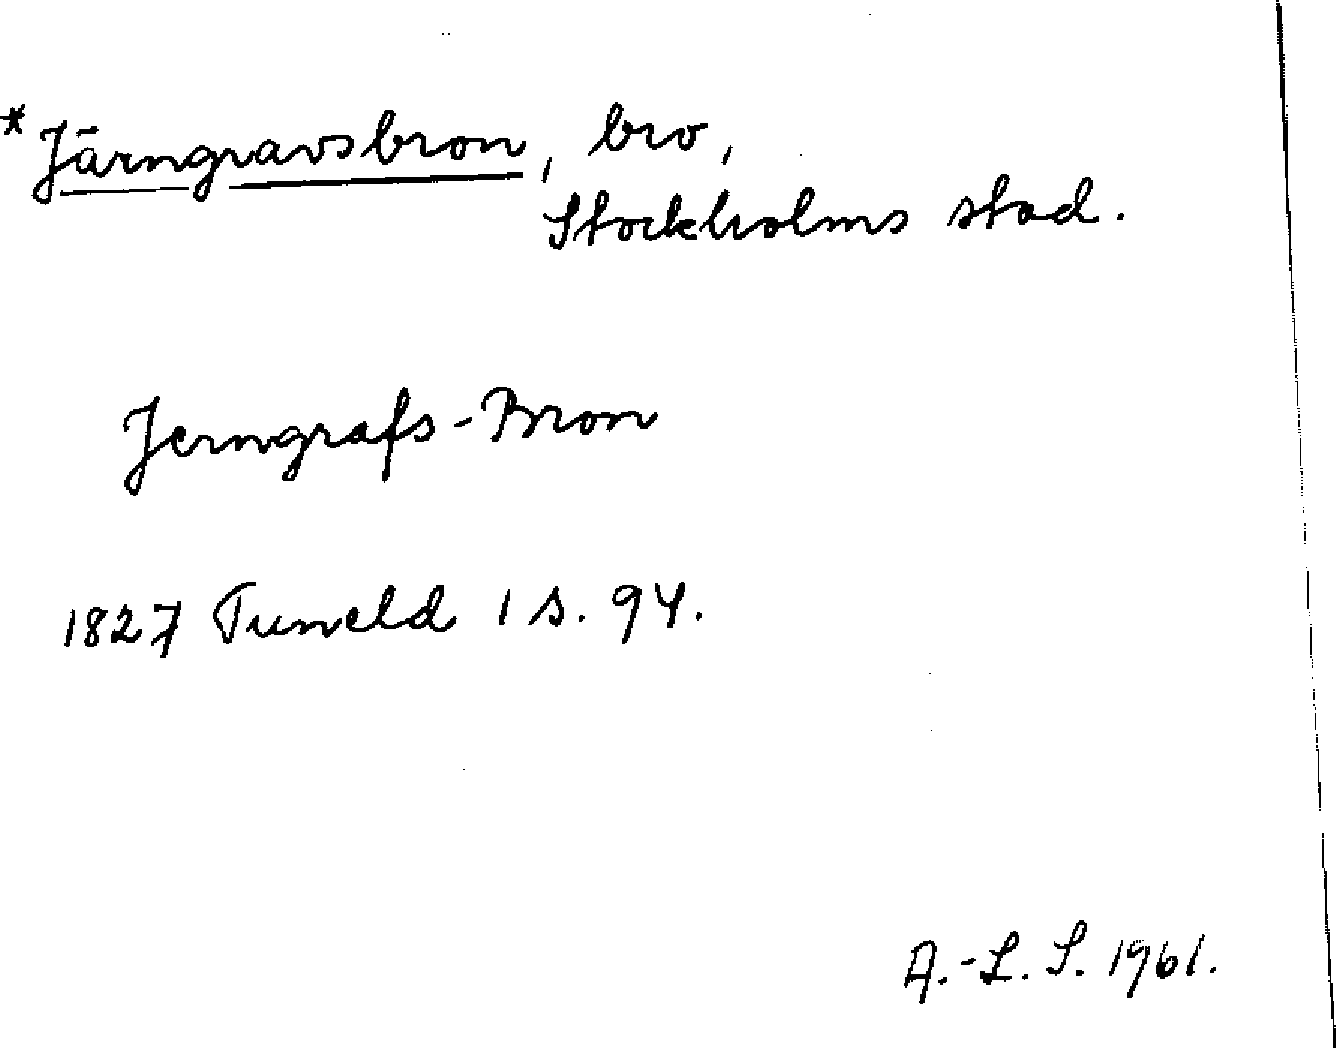 *Järngravsbron, bro,
Stockholms stad.
Jerngrafs-Bron
1827 Tuneld 1 s. 94.
A.-L. S. 1961.